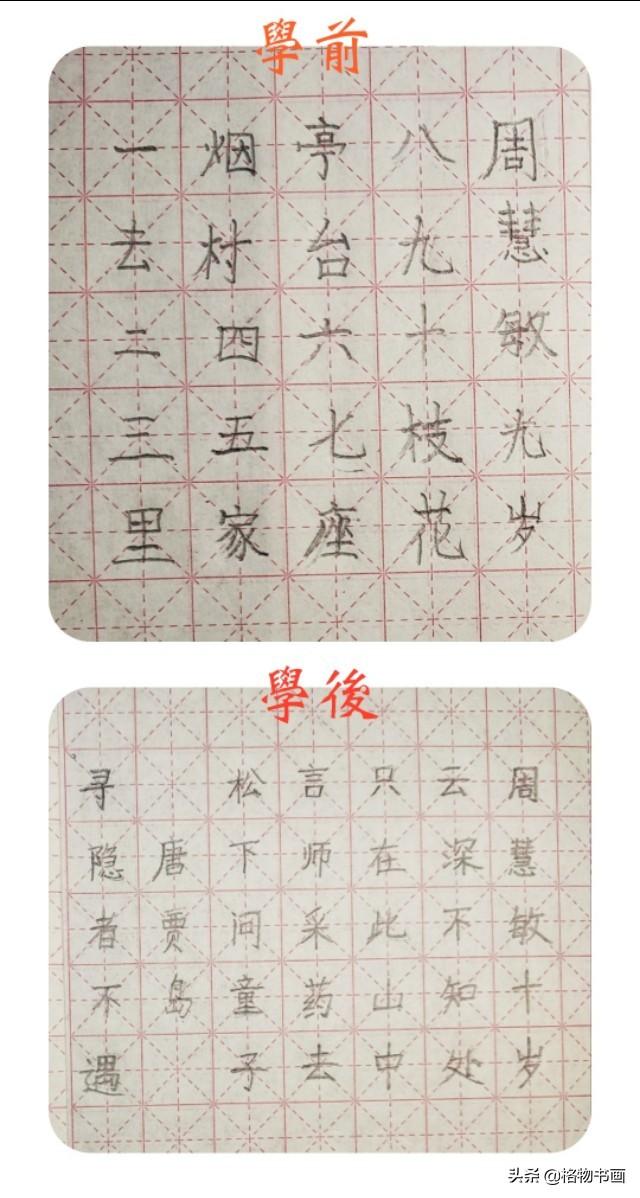 學前
一去二三里
烟村四五家
亭台六七座
八九十枝花
周慧敏九岁
學後
寻隐者不遇
唐贾岛
松下问童子
言师采药去
只在此山中
云深不知处
周慧敏十岁
头条 @格物书画